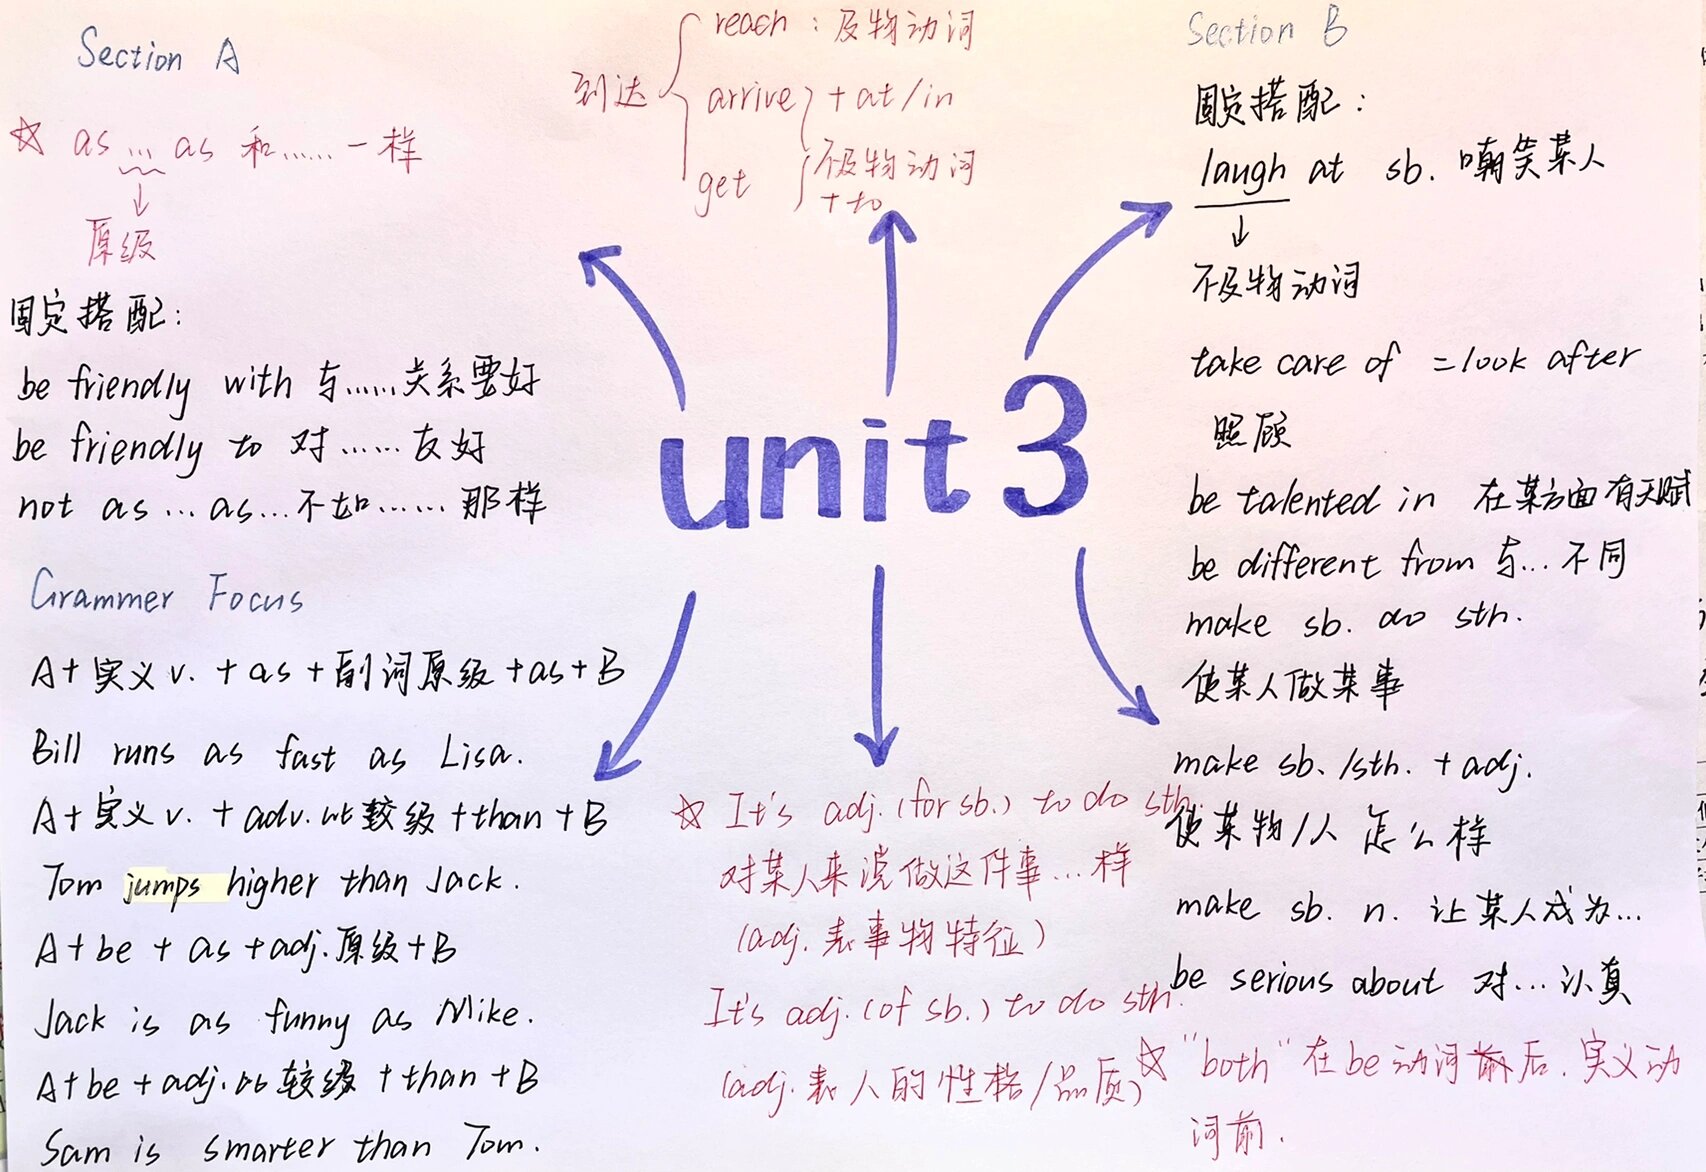 Section A
☆ as ... as 和 ...... 一样
原级
固定搭配:
be friendly with 与 ...... 关系要好
be friendly to 对 ...... 友好
not as ... as ... 不如 ...... 那样
Grammer Focus
A + 实义 v. + as + 副词原级 + as + B
Bill runs as fast as Lisa.
A + 实义 v. + adv. 比较级 + than + B
Tom jumps higher than Jack.
A + be + as + adj. 原级 + B
Jack is as funny as Mike.
A + be + adj. 比较级 + than + B
Sam is smarter than Tom.
到达
reach : 及物动词
arrive + at / in
不及物动词
get + to
unit 3
☆ It's adj. (for sb.) to do sth.
对某人来说做这件事 ... 样
(adj. 表事物特征)
It's adj. (of sb.) to do sth.
(adj. 表人的性格/品质)
Section B
固定搭配:
laugh at sb. 嘲笑某人
不及物动词
take care of = look after
照顾
be talented in 在某方面有天赋
be different from 与 ... 不同
make sb. do sth.
使某人做某事
make sb. / sth. + adj.
使某物/人 怎么样
make sb. n. 让某人成为 ...
be serious about 对 ... 认真
☆ "both" 在 be 动词后. 实义动
词前.